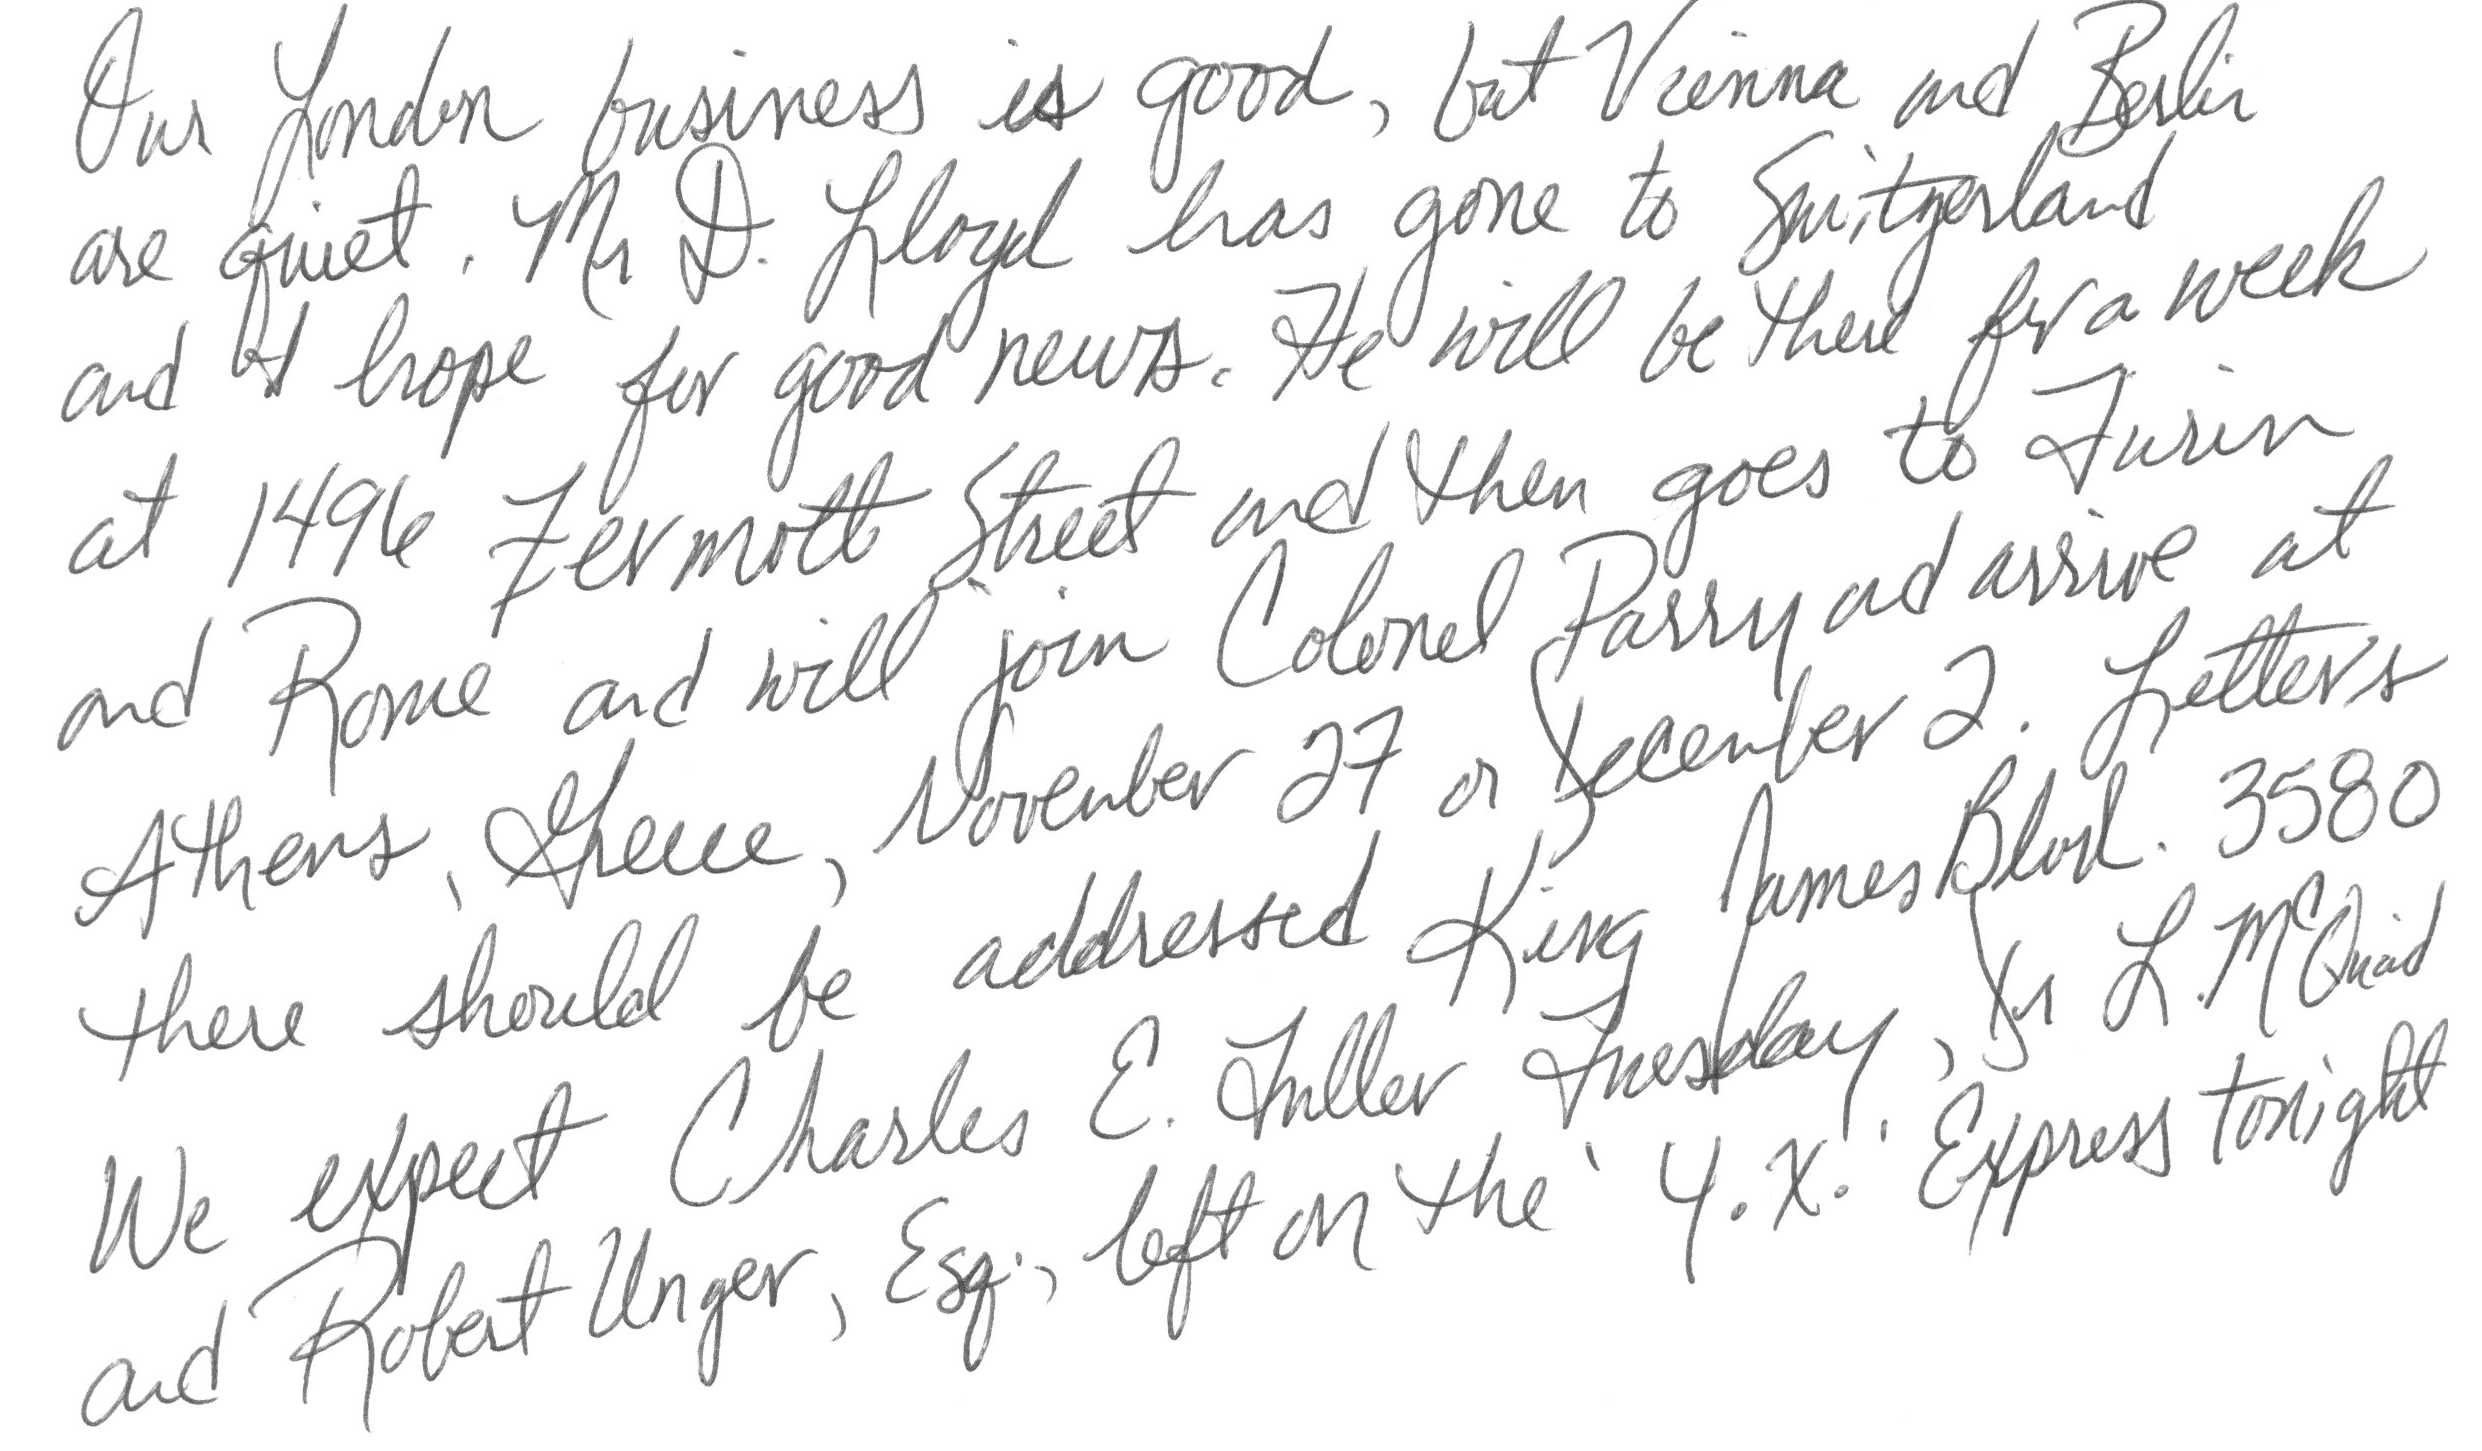 Our London business is good, but Vienna and Berlin
are quiet. Mr. D. Lloyd has gone to Switzerland
and I hope for good news. He will be there for a week
at 1496 Zermott Street and then goes to Turin
and Rome and will join Colonel Parry and arrive at
Athens, Greece, November 27 or December 2. Letters
there should be addressed King James Blvd. 3580
We expect Charles E. Fuller Tuesday, Dr L. McQuaid
and Robert Unger, Esq., left on the 'Y.X.' Express tonight